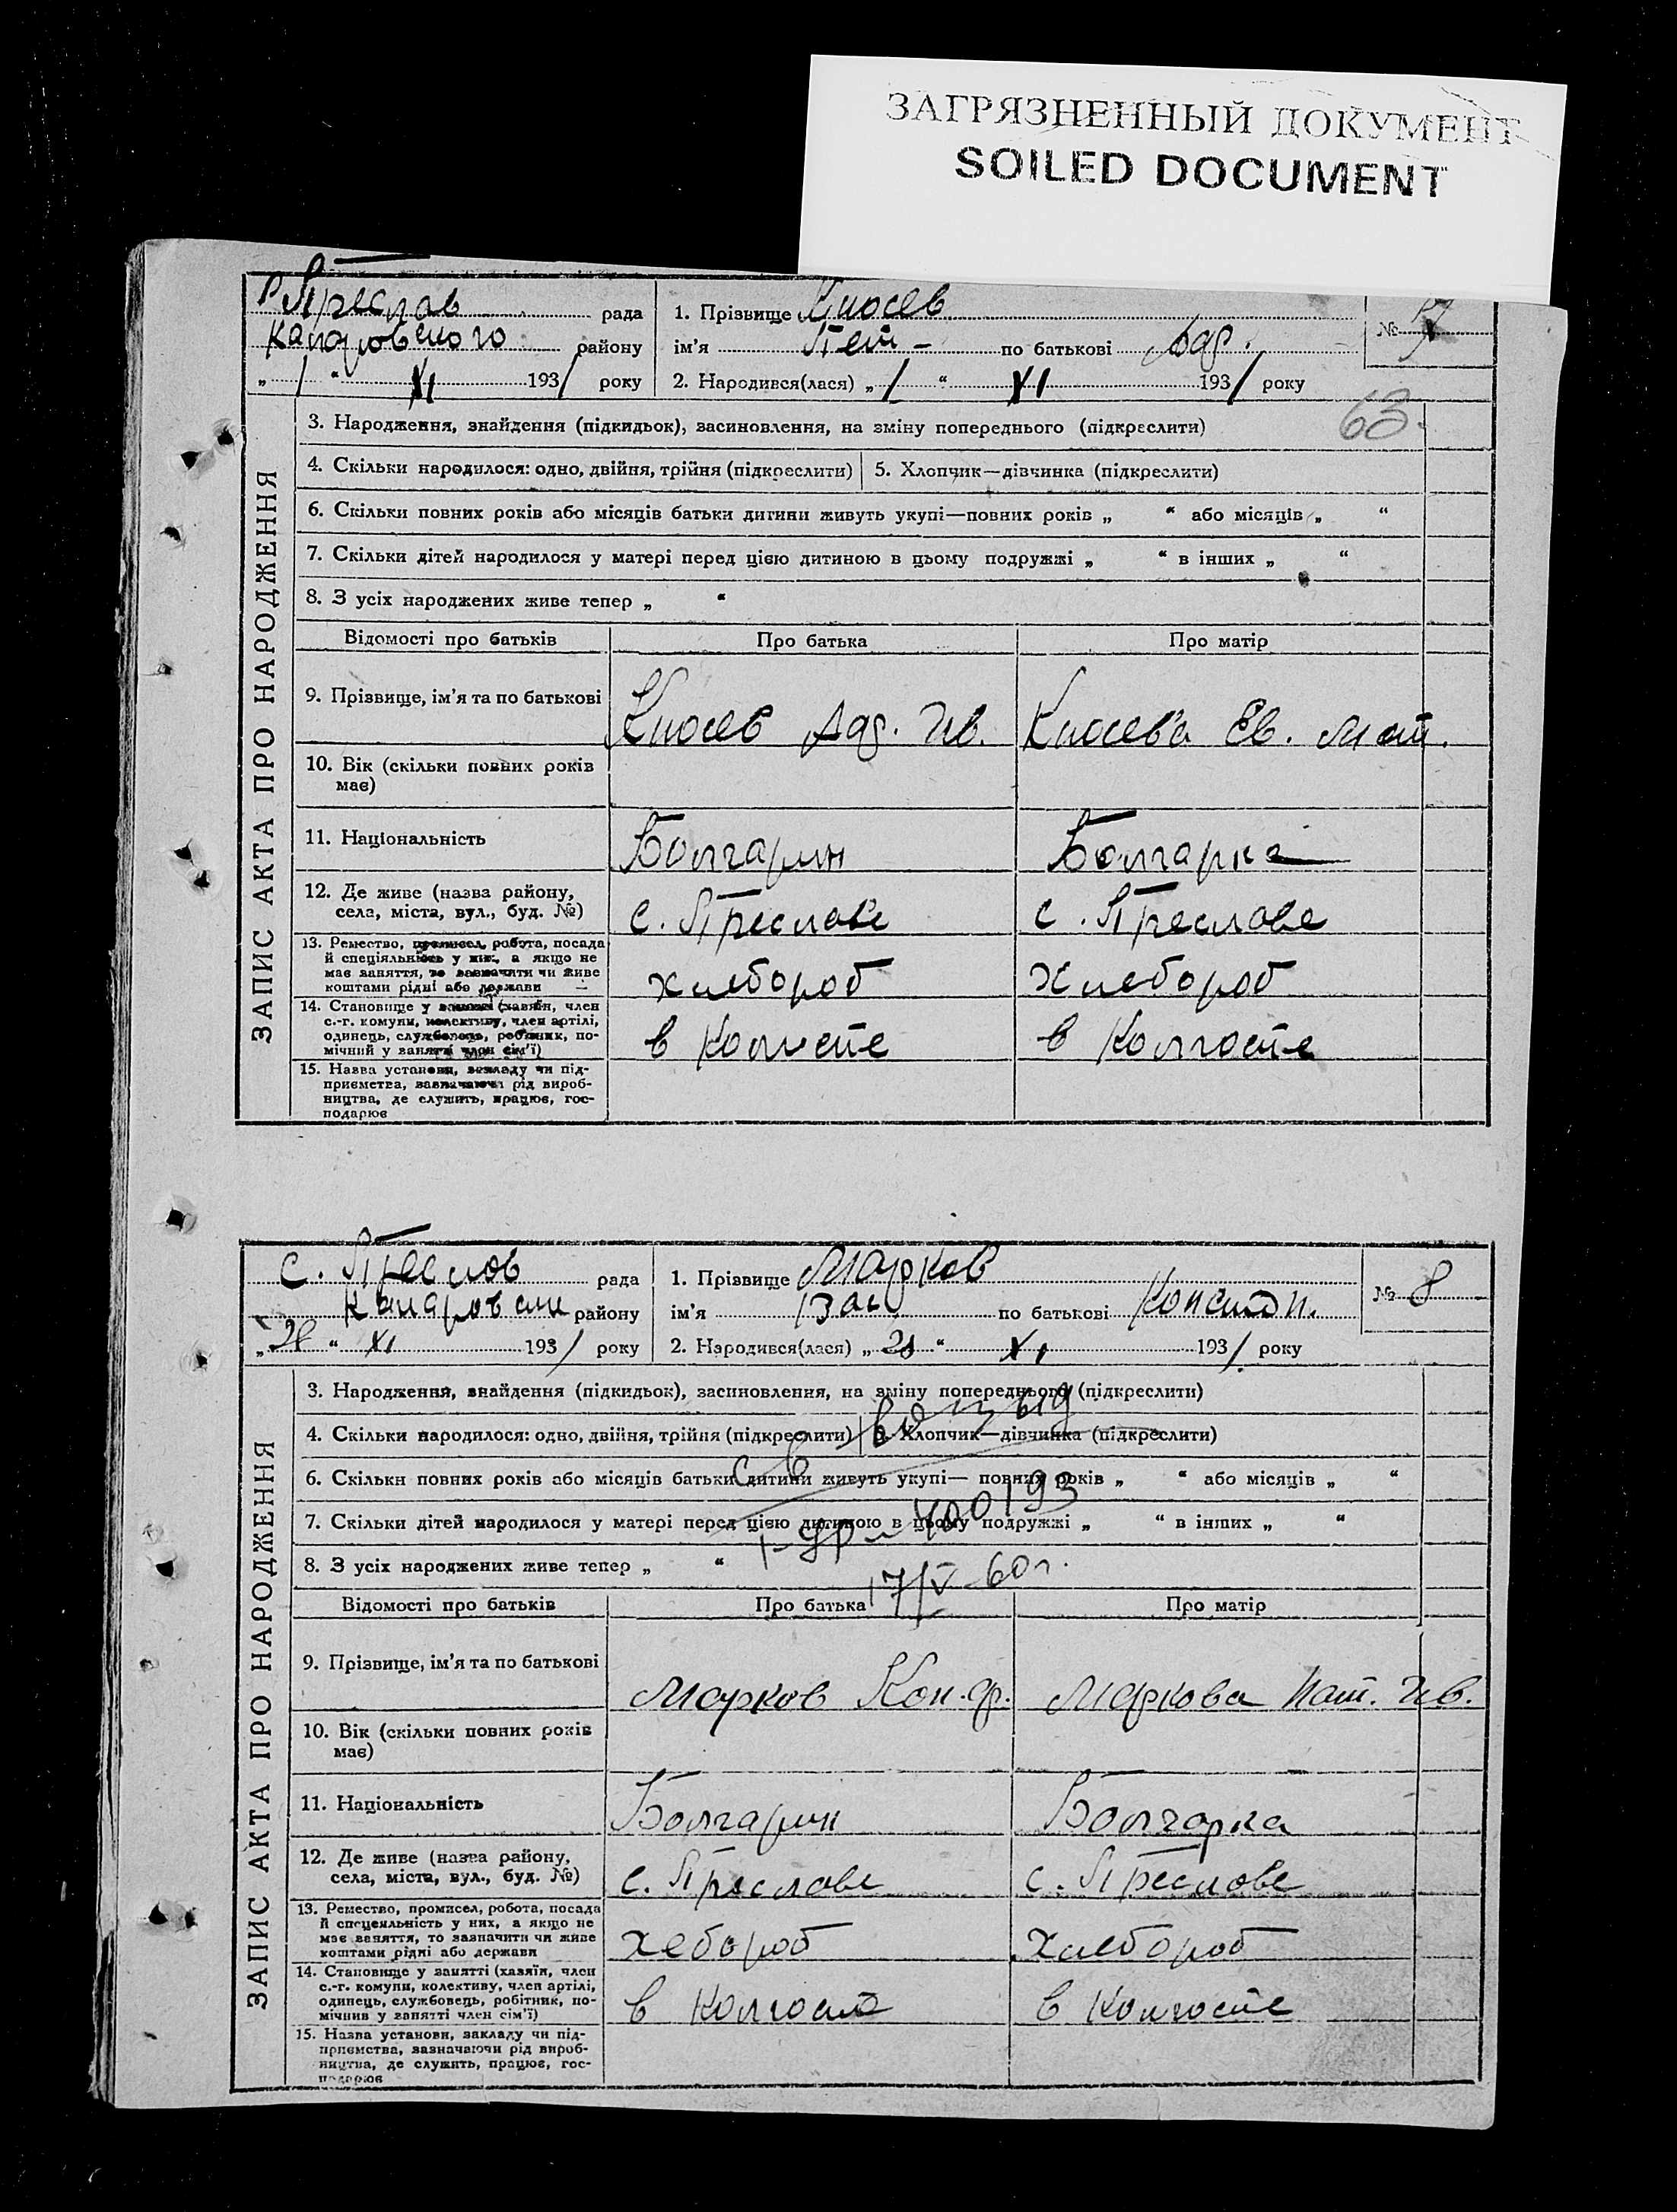 ЗАГРЯЗНЕННЫЙ ДОКУМЕНТ
SOILED DOCUMENT
Преслав рада
район у
„ 1 “ XI 1931 року
1. Прізвище Кюсев
ім’я Пет- по батькові
2. Народився(лася) „ 1 “ XI 1931 року
№ 7
63.
ЗАПИС АКТА ПРО НАРОДЖЕННЯ
3. Народження, знайдення (підкидьок), засиновлення, на зміну попереднього (підкреслити)
4. Скільки народилося: одно, двійня, трійня (підкреслити) 5. Хлопчик—дівчинка (підкреслити)
6. Скільки повних років або місяців батьки дитини живуть укупі—повних років „ “ або місяців „ “
7. Скільки дітей народилося у матері перед цією дитиною в цьому подружжі „ “ в інших „ “
8. З усіх народжених живе тепер „ “
Відомості про батьків Про батька Про матір
9. Прізвище, ім’я та по батькові
Кюсев Ив. Кюсева Ев. Мат.
10. Вік (скільки повних років
має)
11. Національність Болгарин Болгарка
12. Де живе (назва району,
села, міста, вул., буд. №) с. Преславе с. Преславе
13. Ремество, промисел, робота, посада
й спеціяльність у них, а якщо не
має заняття, то зазначити чи живе
коштами рідні або держави
хлебороб хлебороб
14. Становище у занятті (хавяїн, член
с.-г. комуни, колективу, член артілі,
одинець, службовець, робітник, по-
мічний у занятті член сім’ї)
в Колгосте в Колгосте
15. Назва установи, закладу чи під-
приємства, зазначаючи рід вироб-
ництва, де служить, працює, гос-
подарює
с. Преслов рада
району
„ “ XI 1931 року
1. Прізвище Марков
ім’я Вас по батькові Констан.
2. Народився(лася) „ “ XI 1931 року
№ 8
ЗАПИС АКТА ПРО НАРОДЖЕННЯ
3. Народження, знайдення (підкидьок), засиновлення, на зміну попереднього (підкреслити)
4. Скільки народилося: одно, двійня, трійня (підкреслити) 5. Хлопчик—дівчинка (підкреслити)
6. Скільки повних років або місяців батьки дитини живуть укупі— повних років „ “ або місяців „ “
7. Скільки дітей народилося у матері перед цією дитиною в цьому подружжі „ “ в інших „ “
8. З усіх народжених живе тепер „ “
17/V-60г.
Відомості про батьків Про батька Про матір
9. Прізвище, ім’я та по батькові
Марков Маркова Ив.
10. Вік (скільки повних років
має)
11. Національність Болгарин Болгарка
12. Де живе (назва району,
села, міста, вул., буд. №) с. Преславе с. Преславе
13. Ремество, промисел, робота, посада
й спецеяльність у них, а якщо не
має заняття, то зазначити чи живе
коштами рідні або держави
хебороб хлебороб
14. Становище у занятті (хазяїн, член
с.-г. комуни, колективу, член артілі,
одинець, службовець, робітник, по-
мічнив у занятті член сім’ї)
в в Колгосте
15. Назва установи, закладу чи під-
приємства, зазначаючи рід вироб-
ництва, де служить, працює, гос-
подарює